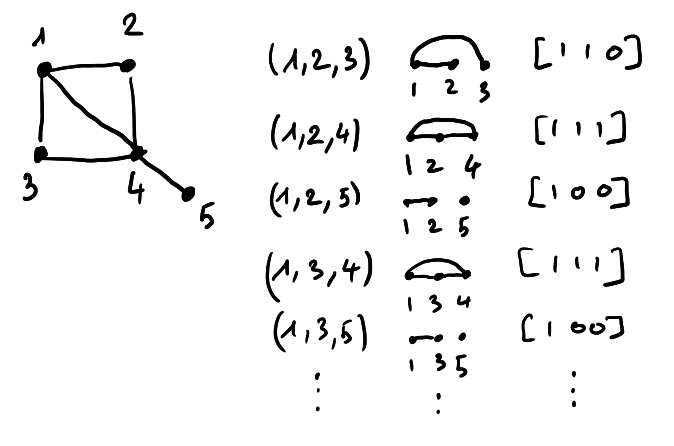 1 2
3 4 5
(1,2,3) 1 2 3 [1 1 0]
(1,2,4) 1 2 4 [1 1 1]
(1,2,5) 1 2 5 [1 0 0]
(1,3,4) 1 3 4 [1 1 1]
(1,3,5) 1 3 5 [1 0 0]
⋮ ⋮ ⋮